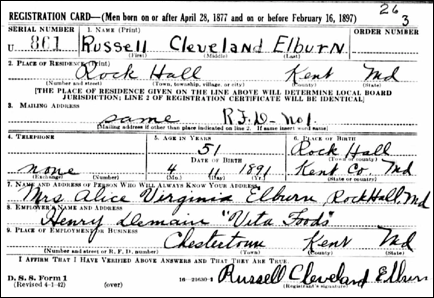 26
3
REGISTRATION CARD—(Men born on or after April 28, 1877 and on or before February 16, 1897)
SERIAL NUMBER 1. NAME (Print) ORDER NUMBER
U 861 Russell Cleveland Elburn
(First) (Middle) (Last)
2. PLACE OF RESIDENCE (Print)
Rock Hall Kent Md
(Number and street) (Town, township, village, or city) (County) (State)
[THE PLACE OF RESIDENCE GIVEN ON THE LINE ABOVE WILL DETERMINE LOCAL BOARD
JURISDICTION; LINE 2 OF REGISTRATION CERTIFICATE WILL BE IDENTICAL]
3. MAILING ADDRESS
same R.F.D- No1.
[Mailing address if other than place indicated on line 2. If same insert word same]
4. TELEPHONE 5. AGE IN YEARS 6. PLACE OF BIRTH
51 Rock Hall
DATE OF BIRTH (Town or county)
none 4 11 1891 Kent Co. Md
(Exchange) (Number) (Mo.) (Day) (Yr.) (State or country)
7. NAME AND ADDRESS OF PERSON WHO WILL ALWAYS KNOW YOUR ADDRESS
Mrs Alice Virginia Elburn, Rock Hall, Md
8. EMPLOYER'S NAME AND ADDRESS
Henry "Vita Foods"
9. PLACE OF EMPLOYMENT OR BUSINESS
Chestertown Kent Md
(Number and street or R. F. D. number) (Town) (County) (State)
I AFFIRM THAT I HAVE VERIFIED ABOVE ANSWERS AND THAT THEY ARE TRUE.
D. S. S. Form 1
(Revised 4-1-42) (over) 16—21630-1 Russell Cleveland Elburn
(Registrant's signature)